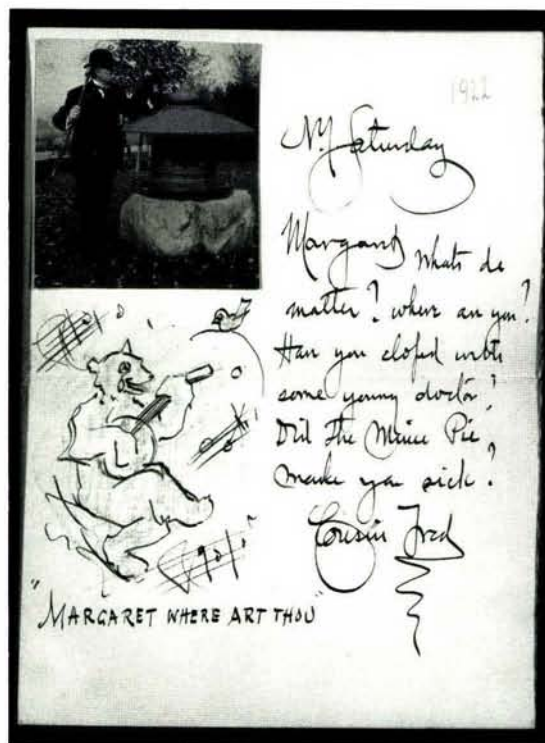 1922
N.Y. Saturday
Margaret whats de
matter? where are you?
Have you eloped with
some young doctor?
Did the Mince Pie
make you sick?
Cousin Fred
"MARGARET WHERE ART THOU"